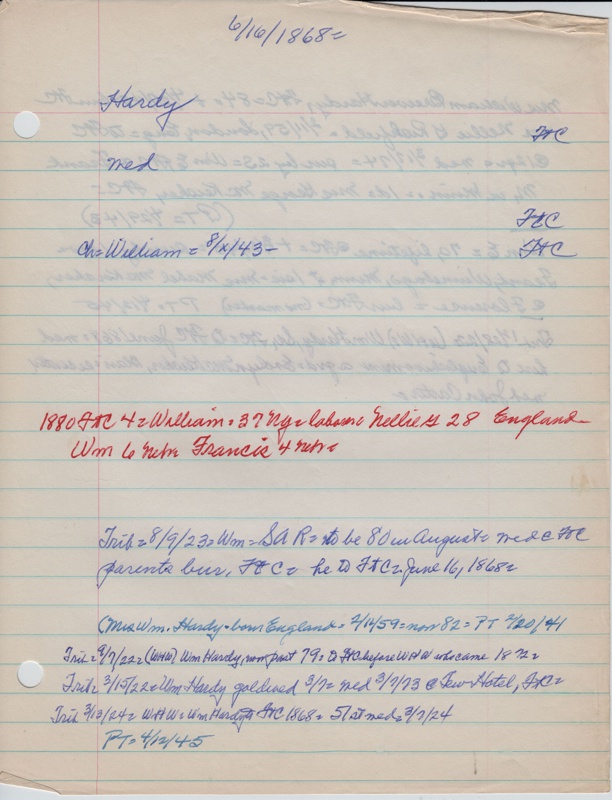 6/16/1868=
Hardy
FtC
med
FtC
Ch=William= 8/x/43-
FtC
1880 FtC 4= William= 37 Ny= laborer= Nellie G 28 England-
Wm 6 Nebr Francis 4 Nebr=
Trib= 8/9/23= Wm= SAR= to be 80 in August= med @ FtC
parents bur, FtC= he to FtC= June 16, 1868=
(Mrs Wm. Hardy= born England= 2/11/59= now 82= PT 2/20/41
Trib= 9/7/22= (WHW) Wm Hardy, now past 79= to FtC before WHW who came 1872=
Trib= 3/15/22= Wm Hardy goldwed 3/7= med 3/7/73 @ Hotel, FtC=
Trib 3/13/24= WHW= Wm Hardy to FtC 1868= 51st med= 3/7/24
PT= 4/12/45